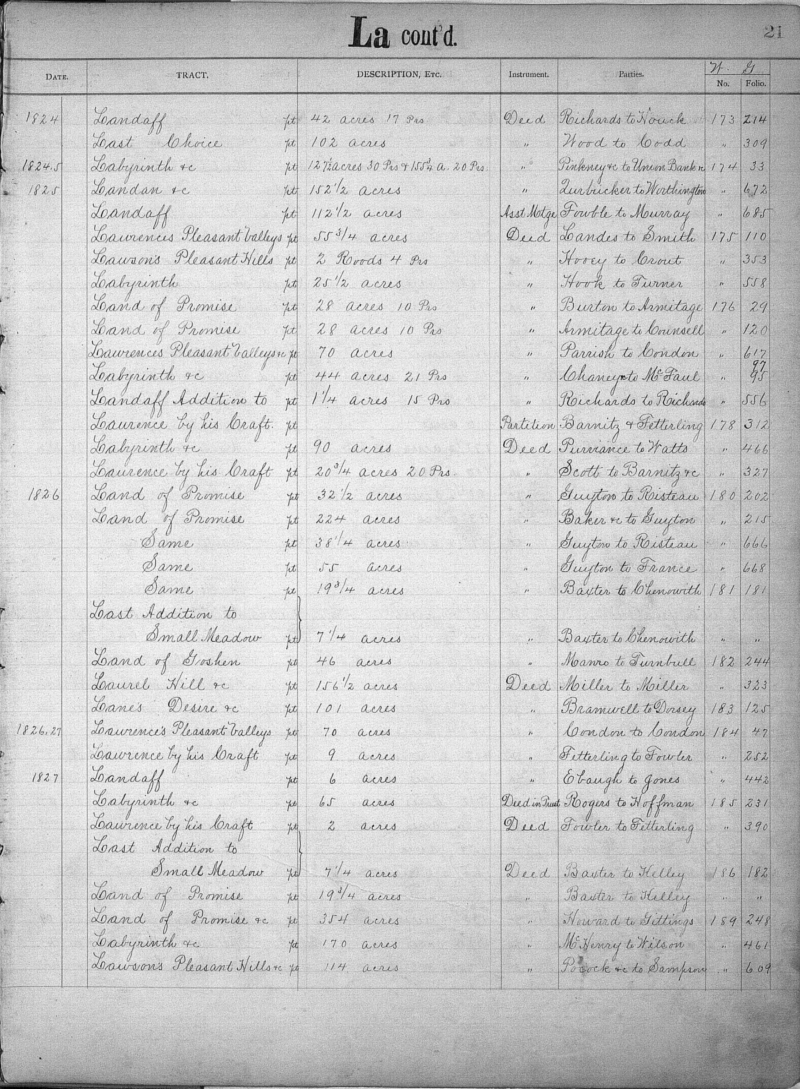 La cont'd.
21
W. G.
DATE. TRACT. DESCRIPTION, ETC. Instrument. Parties. No. Folio.
1824 Landaff pt 42 acres 17 Prs Deed Richards to Houck 173 214
Last Choice pt 102 acres " Wood to Codd " 309
1824.5 Labyrinth &c pt 127½ acres 30 Prs & 155¼ a. 20 Prs. " Pinkney &c to Union Bank &c 174 33
1825 Landan &c pt 152 1/2 acres " to Worthington " 672
Landaff pt 112 1/2 acres Asst. Motge Fowble to Murray " 685
Lawrences Pleasant Valleys pt 55 3/4 acres Deed Landes to Smith 175 110
Lawson's Pleasant Hills pt 2 Roods 4 Prs " Hovey to Crout " 353
Labyrinth pt 25 1/2 acres " Hook to Turner " 558
Land of Promise pt 28 acres 10 Prs " Burton to Armitage 176 29
Land of Promise pt 28 acres 10 Prs " Armitage to Counsell " 120
Lawrences Pleasant Valleys &c pt 70 acres " Parrish to Condon " 617
Labyrinth &c pt 44 acres 21 Prs " Chaney to McFaul " 97 95
Landaff Addition to pt 1 1/4 acres 15 Prs " Richards to Richards " 556
Laurence by his Craft. pt Partition Barnitz & Fetterling 178 312
Labyrinth &c pt 90 acres Deed Purviance to Watts " 466
Laurence by his Craft pt 20 3/4 acres 20 Prs. " Scott to Barnitz &c " 327
1826 Land of Promise pt 32 1/2 acres " Guyton to Risteau 180 202
Land of Promise pt 224 acres " Baker &c to Guyton " 215
Same pt 38 1/4 acres " Guyton to Risteau " 666
Same pt 55 acres " Guyton to France " 668
Same pt 19 3/4 acres " Baxter to Chenowith 181 181
Last Addition to
Small Meadow pt 7 1/4 acres " Baxter to Chenowith " "
Land of Goshen pt 46 acres " Manro to Turnbull 182 244
Laurel Hill &c pt 156 1/2 acres Deed Miller to Miller " 323
Lane's Desire &c pt 101 acres " Bramwell to Dorsey 183 125
1826.27 Lawrence's Pleasant Valleys pt 70 acres " Condon to Condon 184 47
Lawrence by his Craft pt 9 acres " Fetterling to Fowler " 252
1827 Landaff pt 6 acres " Ebaugh to Jones " 442
Labyrinth &c pt 65 acres Deed in Trust Rogers to Hoffman 185 231
Lawrence by his Craft pt 2 acres Deed Fowler to Fetterling " 390
Last Addition to
Small Meadow pt 7 1/4 acres Deed Baxter to Kelley 186 182
Land of Promise pt 19 3/4 acres " Baxter to Kelley " "
Land of Promise &c pt 354 acres " Howard to Gittings 189 248
Labyrinth &c pt 170 acres " McHenry to Wilson " 461
Lawson's Pleasant Hills &c pt 114 acres " Pocock &c to Sampson " 609